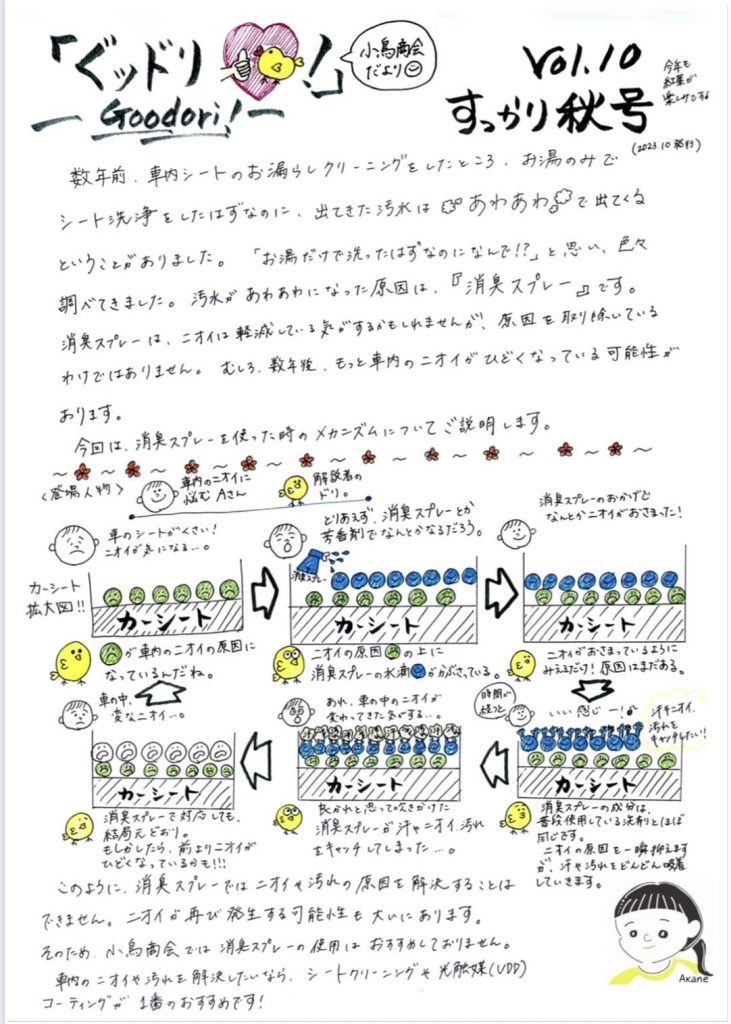 「ぐッドリ!」
小鳥商会
だより
Vol.10
Goodori!
すっかり秋号
今年も
紅葉が
楽しみですね
(2023.10発行)
数年前、車内シートのお漏らしクリーニングをしたところ、お湯のみで
シート洗浄をしたはずなのに、出てきた汚水はあわあわで出てくる
ということがありました。「お湯だけで洗ったはずなのになんで!?」と思い、色々
調べてきました。汚水があわあわになった原因は、『消臭スプレー』です。
消臭スプレーは、ニオイは軽減している気がするかもしれませんが、原因を取り除いている
わけではありません。むしろ、数年後、もっと車内のニオイがひどくなっている可能性が
あります。
今回は、消臭スプレーを使った時のメカニズムについてご説明します。
<登場人物>
車内のニオイに
悩むAさん
解説者の
ドリ。
車のシートがくさい!
ニオイが気になる…。
カーシート
拡大図!!
カーシート
が車内のニオイの原因に
なっているんだね。
とりあえず、消臭スプレーとか
芳香剤でなんとかなるだろう。
消臭スプレー
カーシート
ニオイの原因の上に
消臭スプレーの水滴がかぶさっている。
消臭スプレーのおかげで
なんとかニオイがおさまった!
カーシート
ニオイがおさまっているように
みえるだけ!原因はまだある。
時間が
経つと
いい感じー!
汗やニオイ、
汚れを
キャッチしたい!!
カーシート
消臭スプレーの成分は、
普段使用している洗剤とほぼ
同じです。
ニオイの原因を一瞬抑えます
が、汗や汚れをどんどん吸着
していきます。
あれ、車の中のニオイが
変わってきた気がする…。
カーシート
良かれと思って吹きかけた
消臭スプレーが汗やニオイ、汚れ
をキャッチしてしまった…。
車の中、
変なニオイ…。
カーシート
消臭スプレーで対応しても、
結局元どおり。
もしかしたら、前よりニオイが
ひどくなっているかも!!!
このように、消臭スプレーではニオイや汚れの原因を解決することは
できません。ニオイが再び発生する可能性も大いにあります。
そのため、小鳥商会では消臭スプレーの使用はおすすめしておりません。
車内のニオイや汚れを解決したいなら、シートクリーニングや光触媒(UDD)
コーティングが1番のおすすめです!
Akane